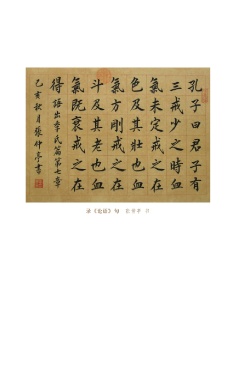 孔子曰君子有
三戒少之時血
氣未定戒之在
色及其壯也血
氣方剛戒之在
斗及其老也血
氣既衰戒之在
得 語出季氏篇第七章
己亥秋月張仲亭書
录《论语》句 张仲亭 书